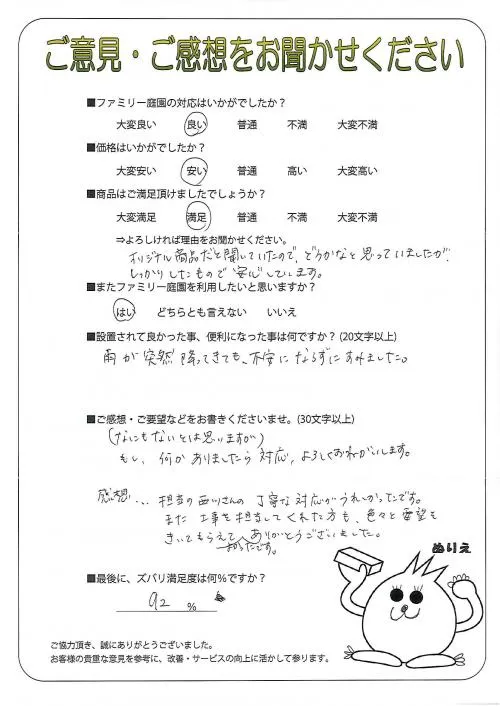 ご意見・ご感想をお聞かせください
■ファミリー庭園の対応はいかがでしたか?
大変良い 良い 普通 不満 大変不満
■価格はいかがでしたか?
大変安い 安い 普通 高い 大変高い
■商品はご満足頂けましたでしょうか?
大変満足 満足 普通 不満 大変不満
⇒よろしければ理由をお聞かせください。
オリジナル商品だと聞いていたので、どうかなと思っていましたが、
しっかりしたもので安心しています。
■またファミリー庭園を利用したいと思いますか?
はい どちらとも言えない いいえ
■設置されて良かった事、便利になった事は何ですか?(20文字以上)
雨が突然降ってきても、不安にならずにすみました。
■ご感想・ご要望などをお書きくださいませ。(30文字以上)
(なにもないとは思いますが)
もし、何かありましたら対応、よろしくおねがいします。
感想... 担当の西川さんの丁寧な対応がうれしかったです。
また工事を担当してくれた方も、色々と要望も
きいてもらえて ありがとうございました。
■最後に、ズバリ満足度は何%ですか?
92 %
ぬりえ
ご協力頂き、誠にありがとうございました。
お客様の貴重な意見を参考に、改善・サービスの向上に活かして参ります。